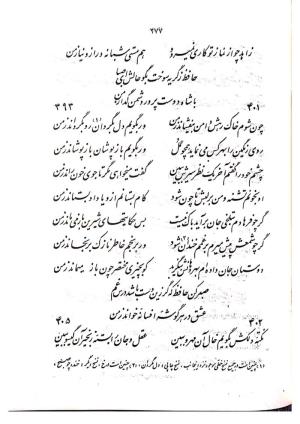 ۲۷۷
زاهد چو از نماز تو کاری نمیرود هم مستی شبانه و راز و نیاز من
حافظ ز گریه سوخت بگو حالش ای صبا
با شاه دوست پرور دشمن گداز من
۴۰۱ ۳۹۳
چون شوم خاک رهش دامن بیفشاند ز من ور بگویم دل بگردان(۱) رو بگرداند ز من
روی رنگین را بهر کس می نماید همچو گل ور بگویم باز پوشان باز پوشاند ز من
چشم خود را گفتم آخر یک نظر سیرش ببین گفت میخواهی مگر تا جوی خون راند ز من
او بخونم تشنه و من بر لبش تا چون شود کام بستانم ازو یا داد بستاند ز من
گر چو فرهادم بتلخی جان برآید باک نیست بس حکایتهای شیرین باز می ماند ز من
گر چو شمعش پیش میرم بر غمم خندان شود ور برنجم خاطر نازک برنجاند ز من
دوستان جان داده‌ام بهر دهانش بنگرید کو بچیزی مختصر چون باز میماند ز من
صبر کن حافظ که گر زین دست باشد درس غم
عشق در هر گوشه‌ای افسانه‌ای خواند ز من
۴۰۲ ۴۰۵
نکته‌ای دلکش بگویم خال آن مهرو ببین عقل و جان را بسته زنجیر آن گیسو ببین